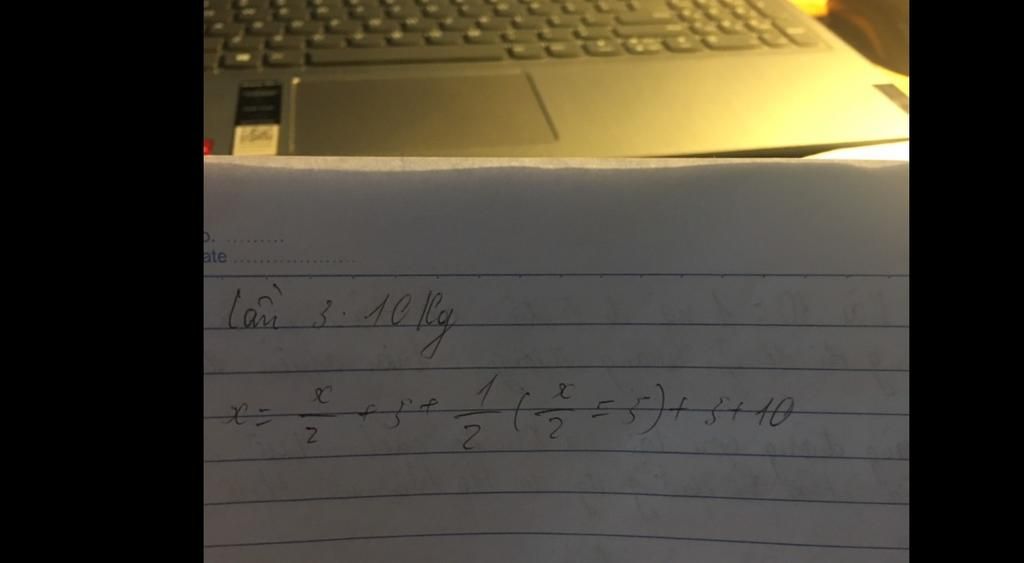 o. ..........
ate ...................
lần 3. 10 Kg
x = x/2 + 5 + 1/2 (x/2 = 5) + 5 + 10